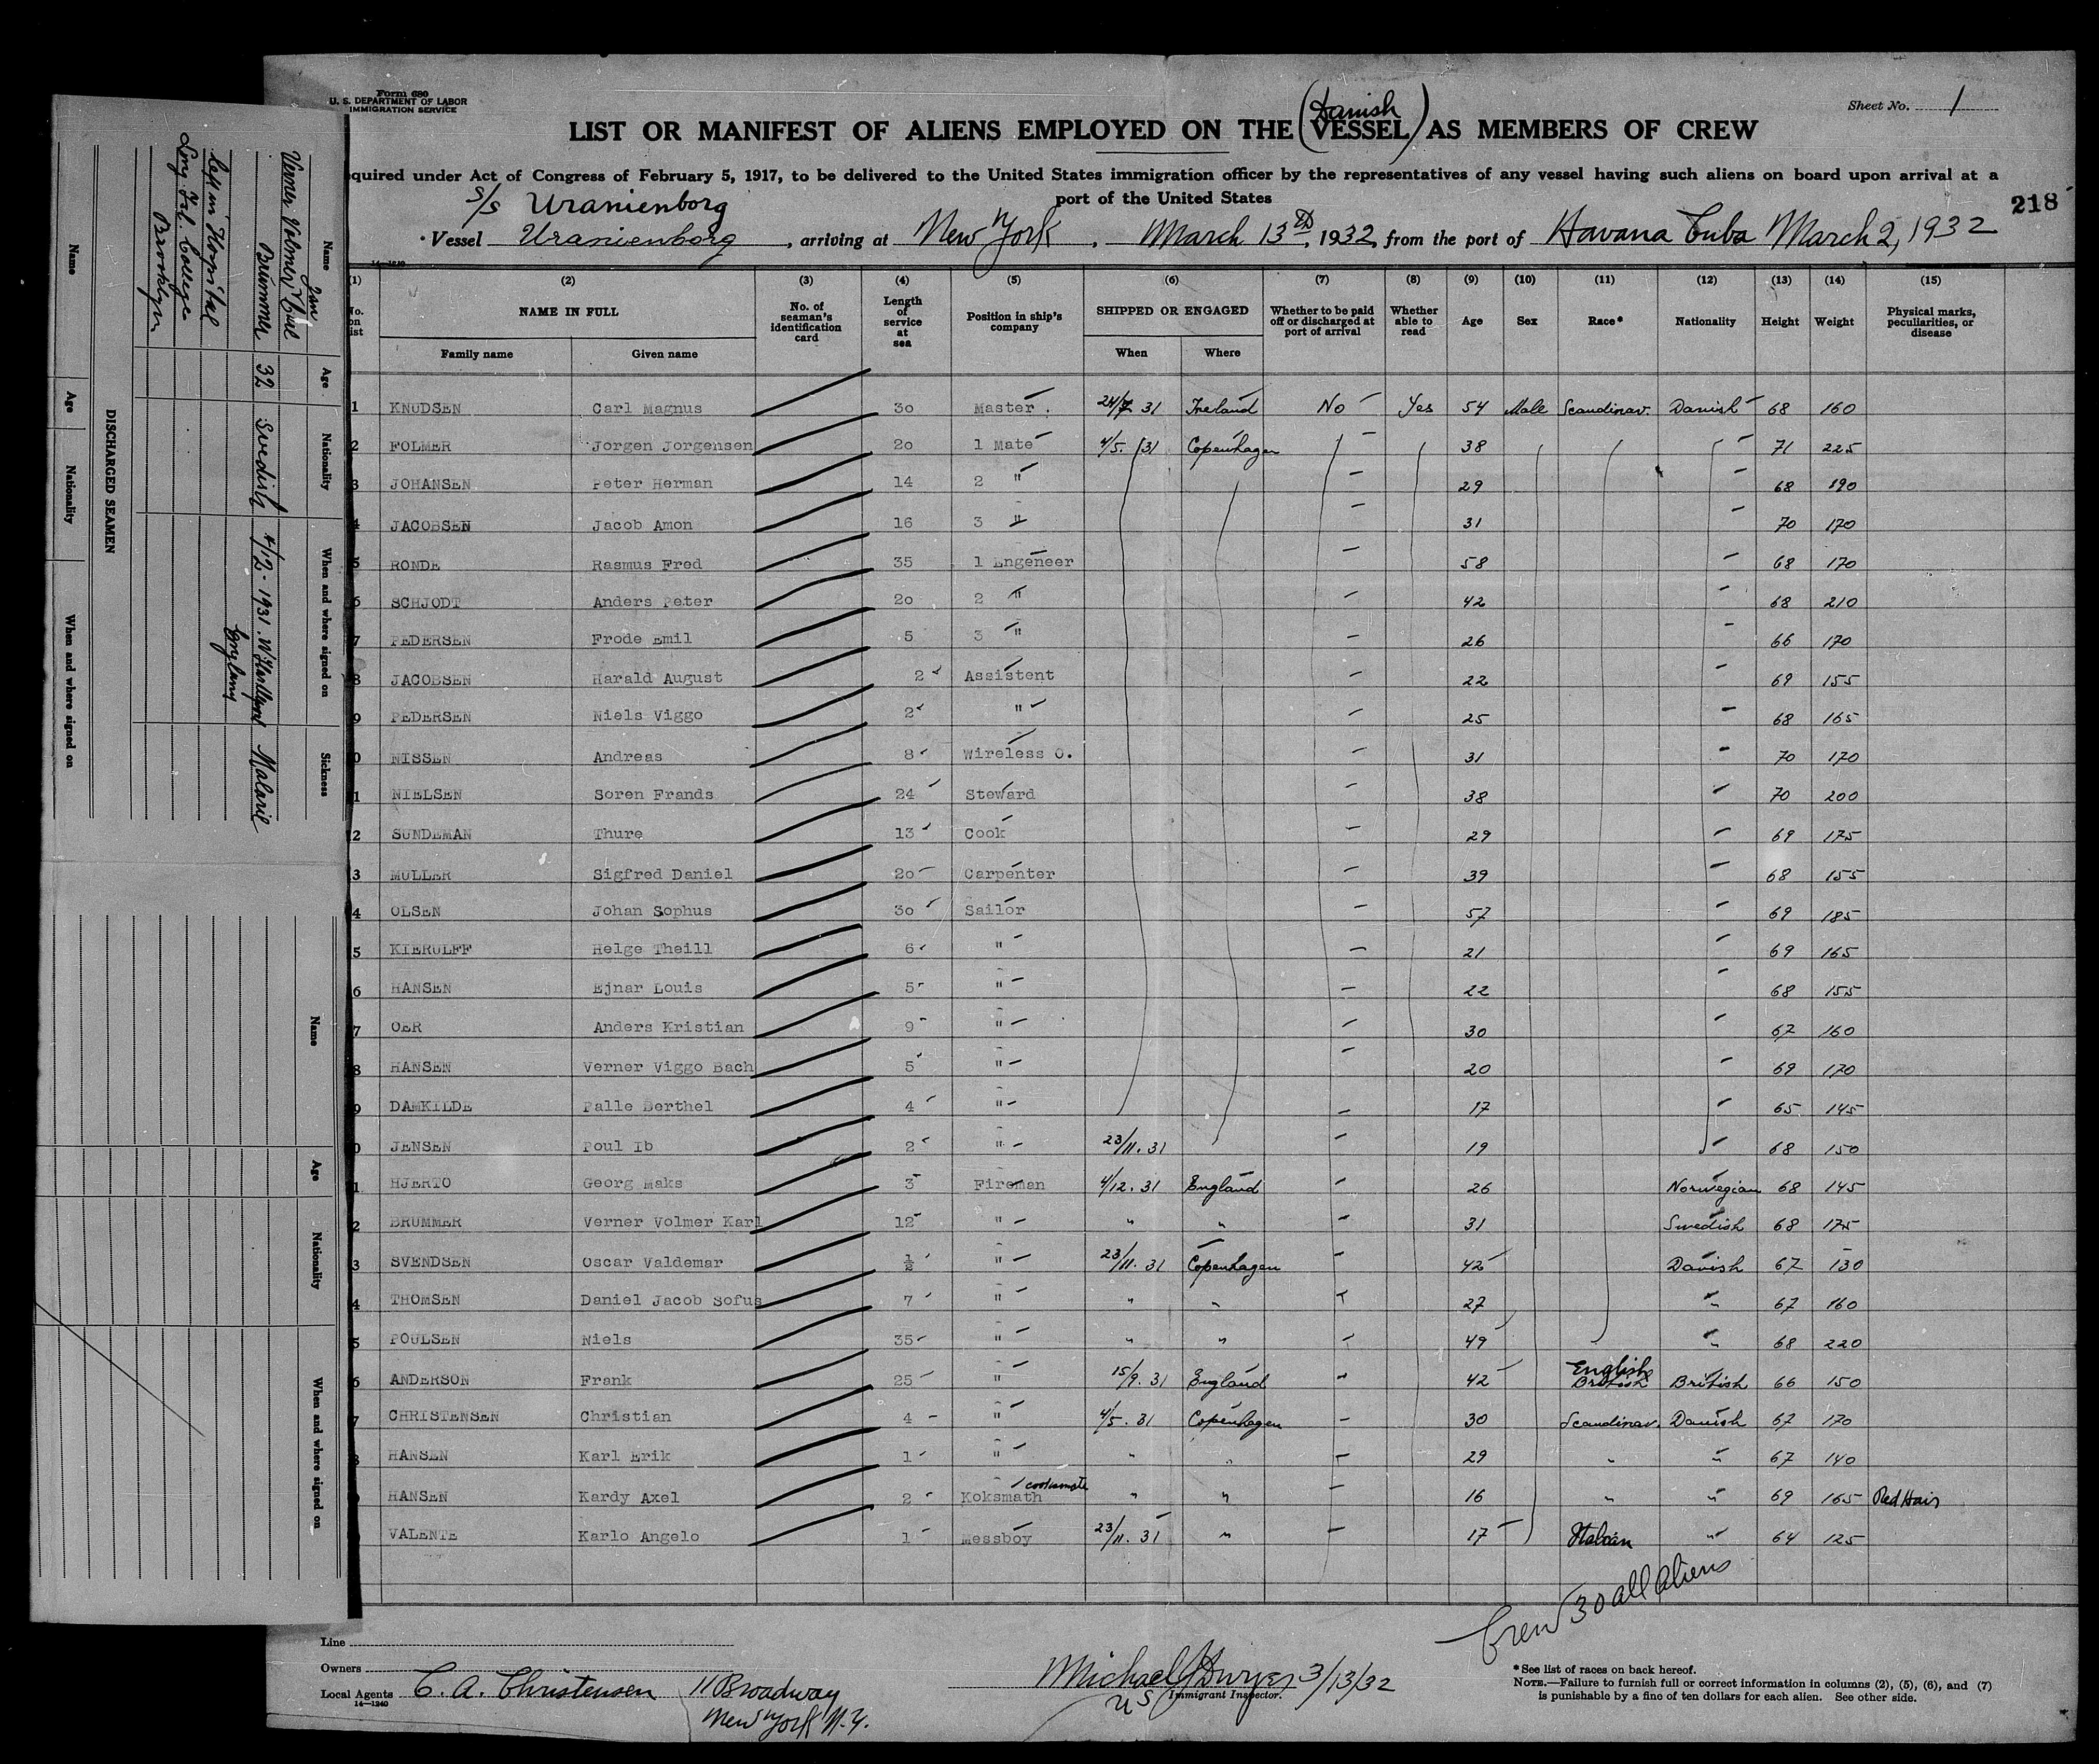 Form 680
U. S. DEPARTMENT OF LABOR
IMMIGRATION SERVICE
Sheet No. 1
(Danish)
LIST OR MANIFEST OF ALIENS EMPLOYED ON THE VESSEL AS MEMBERS OF CREW
quired under Act of Congress of February 5, 1917, to be delivered to the United States immigration officer by the representatives of any vessel having such aliens on board upon arrival at a
port of the United States
218
S/S Uranienborg
Vessel Uranienborg, arriving at New York, March 13th, 1932, from the port of Havana Cuba March 2, 1932
14—1240
(1) (2) (3) (4) (5) (6) (7) (8) (9) (10) (11) (12) (13) (14) (15)
No. on list NAME IN FULL No. of seaman's identification card Length of service at sea Position in ship's company SHIPPED OR ENGAGED Whether to be paid off or discharged at port of arrival Whether able to read Age Sex Race* Nationality Height Weight Physical marks, peculiarities, or disease
Family name Given name When Where
1 KNUDSEN Carl Magnus 30 Master 24/7 31 Ireland No Yes 54 Male Scandinav. Danish 68 160
2 FOLMER Jorgen Jorgensen 20 1 Mate 4/5. 31 Copenhagen 38 71 225
3 JOHANSEN Peter Herman 14 2 " 29 68 190
4 JACOBSEN Jacob Amon 16 3 " 31 70 170
5 RONDE Rasmus Fred 35 1 Engeneer 58 68 170
6 SCHJODT Anders Peter 20 2 " 42 68 210
7 PEDERSEN Frode Emil 5 3 " 26 66 170
8 JACOBSEN Harald August 2 Assistent 22 69 155
9 PEDERSEN Niels Viggo 2 " 25 68 165
0 NISSEN Andreas 8 Wireless O. 31 70 170
1 NIELSEN Soren Frands 24 Steward 38 70 200
2 SUNDEMAN Thure 13 Cook 29 69 175
3 MULLER Sigfred Daniel 20 Carpenter 39 68 155
4 OLSEN Johan Sophus 30 Sailor 57 69 185
5 KIERULFF Helge Theill 6 " 21 69 165
6 HANSEN Ejnar Louis 5 " 22 68 155
7 OER Anders Kristian 9 " 30 67 160
8 HANSEN Verner Viggo Bach 5 " 20 69 170
9 DAMKILDE Palle Berthel 4 " 17 65 145
0 JENSEN Poul Ib 2 " 23/11. 31 19 68 150
1 HJERTO Georg Maks 3 Fireman 4/12. 31 England 26 Norwegian 68 145
2 BRUMMER Verner Volmer Karl 12 " " " 31 Swedish 68 175
3 SVENDSEN Oscar Valdemar 1/2 " 23/11. 31 Copenhagen 42 Danish 67 130
4 THOMSEN Daniel Jacob Sofus 7 " " " 27 " 67 160
5 POULSEN Niels 35 " " " 49 " 68 220
6 ANDERSON Frank 25 " 15/9. 31 England 42 English British British 66 150
7 CHRISTENSEN Christian 4 " 4/5. 31 Copenhagen 30 Scandinav. Danish 67 170
8 HANSEN Karl Erik 1 " " " 29 " " 67 140
HANSEN Kardy Axel 2 Koksmath cooksmate " " 16 " " 69 165 Red Hair
VALENTE Karlo Angelo 1 Messboy 23/11. 31 " 17 Italian " 64 125
Crew 30 all aliens
Line
Owners
Local Agents C. A. Christensen 11 Broadway
New York N.Y.
14—1240
Michael Dwyer 3/13/32
US Immigrant Inspector.
*See list of races on back hereof.
NOTE.—Failure to furnish full or correct information in columns (2), (5), (6), and (7)
is punishable by a fine of ten dollars for each alien. See other side.
DISCHARGED SEAMEN
Name Age Nationality When and where signed on Sickness
Verner Volmer Karl
Brümmer 32 Swedish 4/12-1931. Malarie
England
Left in Hospital
Long Isl. College
Brooklyn
Name Age Nationality When and where signed on
Name Age Nationality When and where signed on